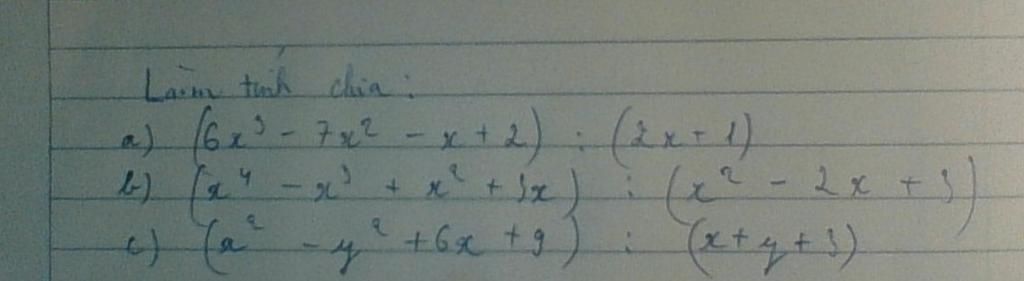 Làm tính chia :
a) (6x³ - 7x² - x + 2) : (2x + 1)
b) (x⁴ - x³ + x² + 3x) : (x² - 2x + 3)
c) (x² - y² + 6x + 9) : (x + y + 3)